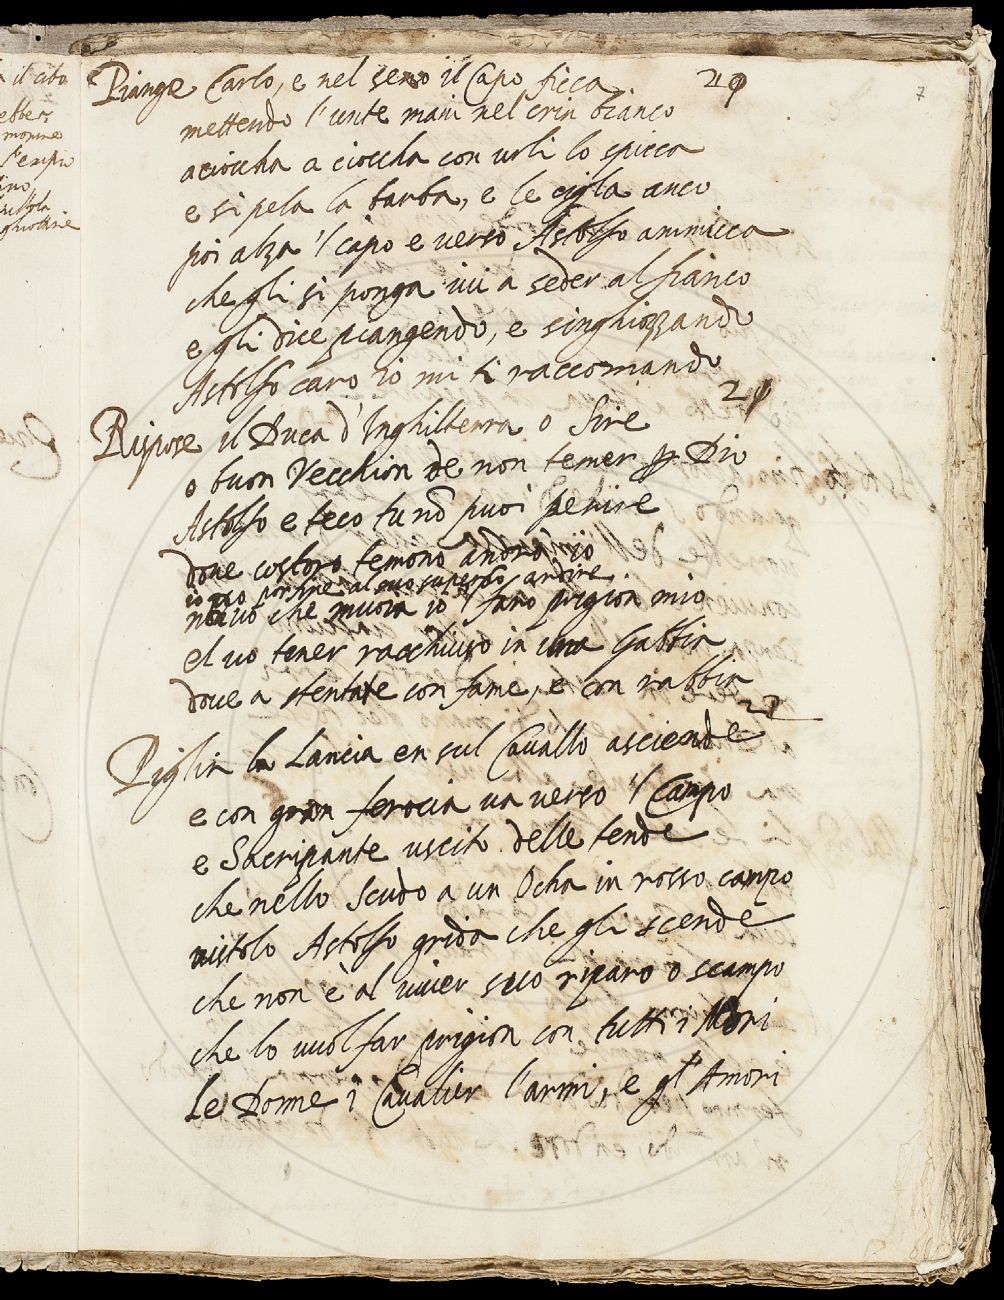 Piange Carlo, e nel seno il Capo ficca
mettendo l'unte mani nel crin bianco
a ciocha a ciocha con urli lo spicca
e si pela la barba, e le ciglia anco
poi alza 'l capo e verso Astolfo ammicca
che gli si ponga ivi a seder al fianco
e gli dice piangendo, e singhiozzando
Astolfo caro io mi ti raccomando
Rispose il Duca d'Inghilterra o Sire
o buon Vecchion de non temer Dio
Astolfo e teco tu nō puoi perire
dove costoro temono andrò io
io vo por fine al suo superbo ardire
che muoia io 'l farò prigion mio
el vo tener racchiuso in una Gabbia
dove a stentare con fame, e con rabbia
Piglia la Lancia en sul Cavallo asciende
e con gran ferocia va verso 'l Campo
e Sacripante uscito delle tende
che nello Scudo a un Ocha in rosso campo
vistolo Astolfo grida che gli scende
che non è al viver suo riparo o scampo
che lo vuol far prigion con tutti i Mori
Le Donne i Cavalier l'armi, e gl'Amori
7